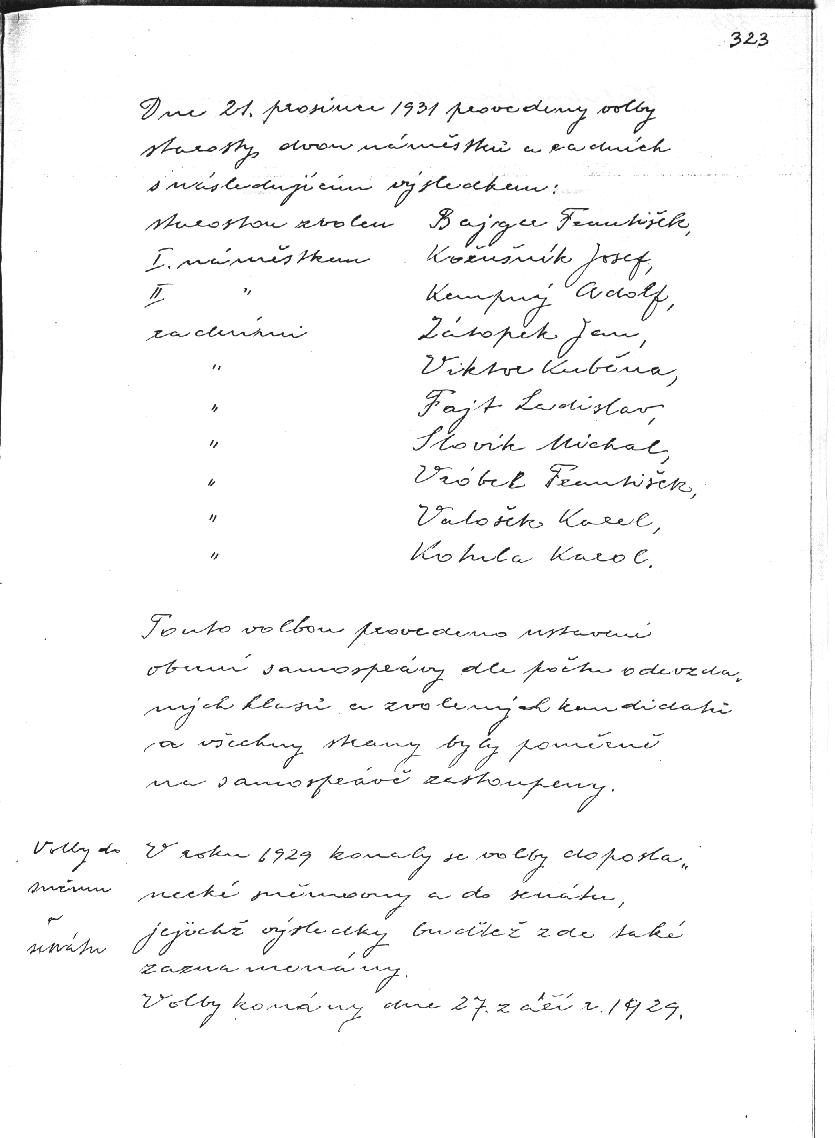 323
Dne 21. prosince 1931 provedeny volby
starosty, dvou náměstků a radních
s následujícím výsledkem:
starostou zvolen Bajger František,
I. náměstkem Kořušník Josef,
II " Kempný Adolf,
radními Zátopek Jan,
" Viktor Kuběna,
" Fajt Ladislav,
" Slovík Michal,
" Vróbel František,
" Valošek Karel,
" Kohula Karol.
Touto volbou provedeno ustavení
obecní samosprávy dle počtu odevzda„
ných hlasů a zvolených kandidátů
a všechny strany byly poměrně
na samosprávě zastoupeny.
Volby do
sněmu
a
senátu
V roku 1929 konaly se volby do posla„
necké sněmovny a do senátu,
jejichž výsledky buďtež zde také
zaznamenány.
Volby konány dne 27. září r. 1929.